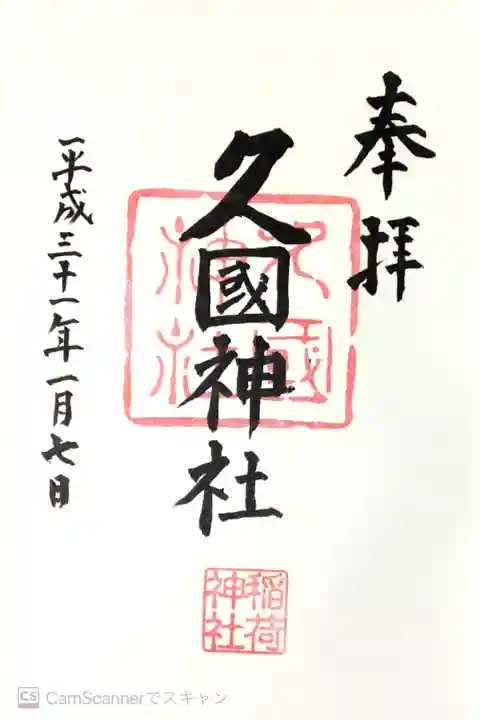 奉拝
久國神社
久國
神社
平成三十一年一月七日
稲荷
神社
CS CamScannerでスキャン